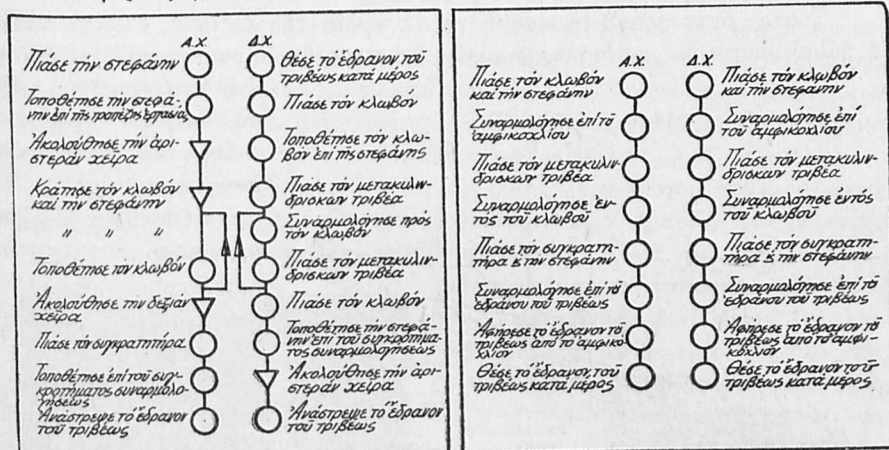 Α.Χ. Δ.Χ.
Πιάσε τὴν στεφάνην
Τοποθέτησε τὴν στεφά-
νην ἐπὶ τῆς τραπέζης ἐργασίας
Ἀκολούθησε τὴν ἀρι-
στερὰν χεῖρα
Κράτησε τὸν κλωβὸν
καὶ τὴν στεφάνην
" " "
Τοποθέτησε τὸν κλωβόν
Ἀκολούθησε τὴν δεξιὰν
χεῖρα
Πιάσε τὸν συγκρατητῆρα
Τοποθέτησε ἐπὶ τοῦ συγ-
κροτήματος συναρμολο-
γήσεως
Ἀνάστρεψε τὸ ἕδρανον
τοῦ τριβέως
Θέσε τὸ ἕδρανον τοῦ
τριβέως κατὰ μέρος
Πιάσε τὸν κλωβόν
Τοποθέτησε τὸν κλω-
βὸν ἐπὶ τῆς στεφάνης
Πιάσε τὸν μετακυλιν-
δρίσκων τριβέα
Συναρμολόγησε πρὸς
τὸν κλωβόν
Πιάσε τὸν μετακυλιν-
δρίσκων τριβέα
Πιάσε τὸν κλωβόν
Τοποθέτησε τὴν στεφά-
νην ἐπὶ τοῦ συγκροτήμα-
τος συναρμολογήσεως
Ἀκολούθησε τὴν ἀρι-
στερὰν χεῖρα
Ἀνάστρεψε τὸ ἕδρανον
τοῦ τριβέως
Α.Χ. Δ.Χ.
Πιάσε τὸν κλωβὸν
καὶ τὴν στεφάνην
Συναρμολόγησε ἐπὶ τοῦ
ἀμφικοχλίου
Πιάσε τὸν μετακυλιν-
δρίσκων τριβέα
Συναρμολόγησε ἐν-
τὸς τοῦ κλωβοῦ
Πιάσε τὸν συγκρατη-
τῆρα & τὴν στεφάνην
Συναρμολόγησε ἐπὶ τοῦ
ἑδράνου τοῦ τριβέως
Ἀφῄρεσε τὸ ἕδρανον τοῦ
τριβέως ἀπὸ τὸ ἀμφικο-
χλιον
Θέσε τὸ ἕδρανον τοῦ
τριβέως κατὰ μέρος
Πιάσε τὸν κλωβὸν
καὶ τὴν στεφάνην
Συναρμολόγησε ἐπὶ
τοῦ ἀμφικοχλίου
Πιάσε τὸν μετακυλιν-
δρίσκων τριβέα
Συναρμολόγησε ἐντὸς
τοῦ κλωβοῦ
Πιάσε τὸν συγκρατη-
τῆρα & τὴν στεφάνην
Συναρμολόγησε ἐπὶ τοῦ
ἑδράνου τοῦ τριβέως
Ἀφῄρεσε τὸ ἕδρανον τοῦ
τριβέως ἀπὸ τὸ ἀμφι-
κόχλιον
Θέσε τὸ ἕδρανον τοῦ
τριβέως κατὰ μέρος